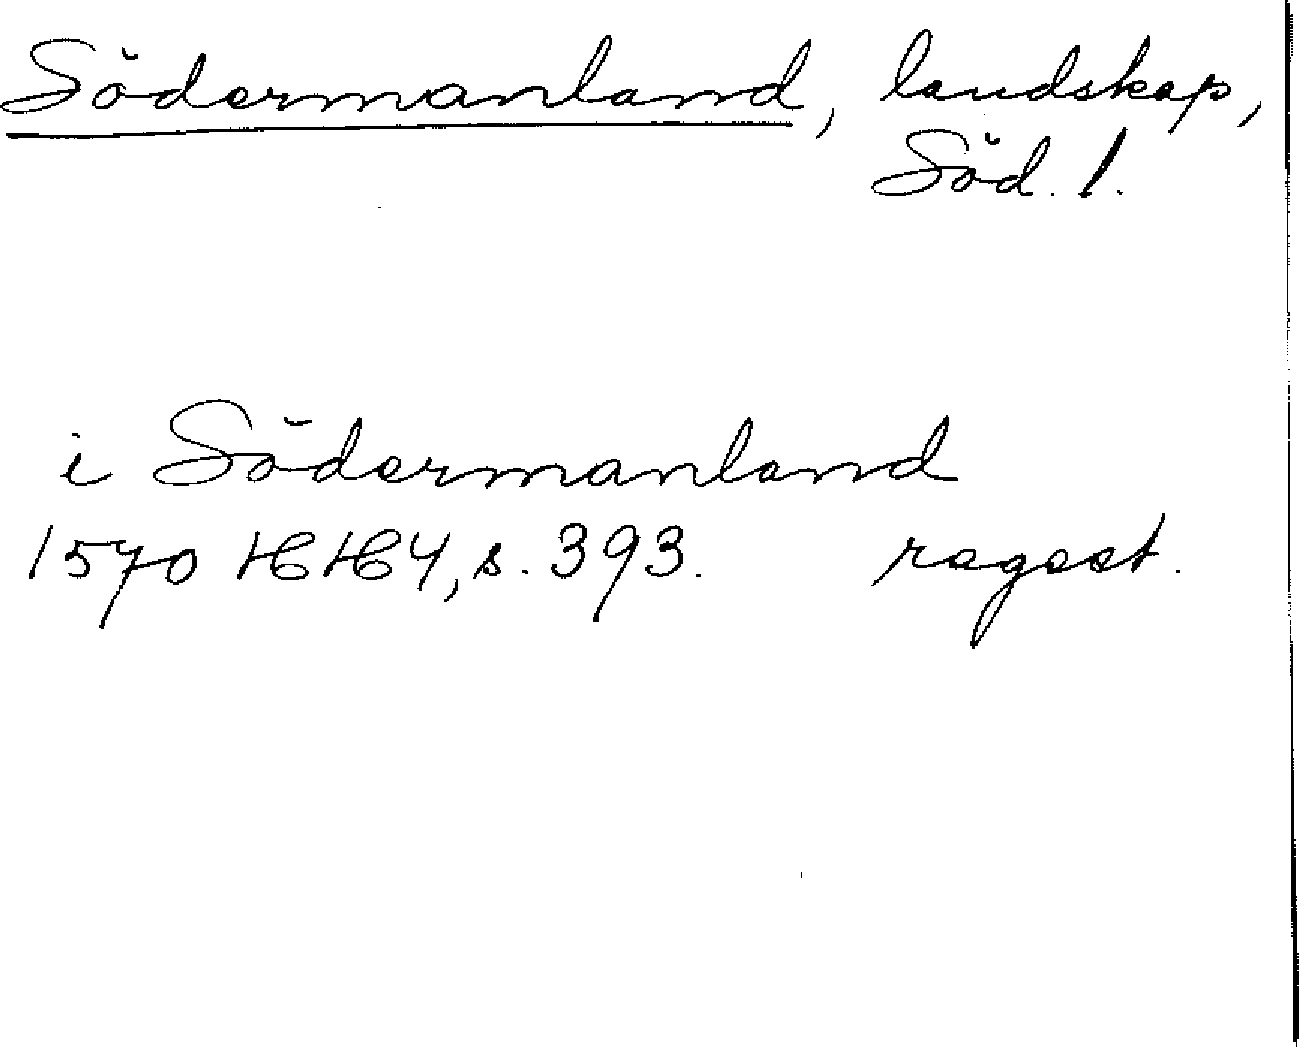 Södermanland, landskap,
Söd. l.
i Södermanland
1570 HH 4, s. 393. regest.